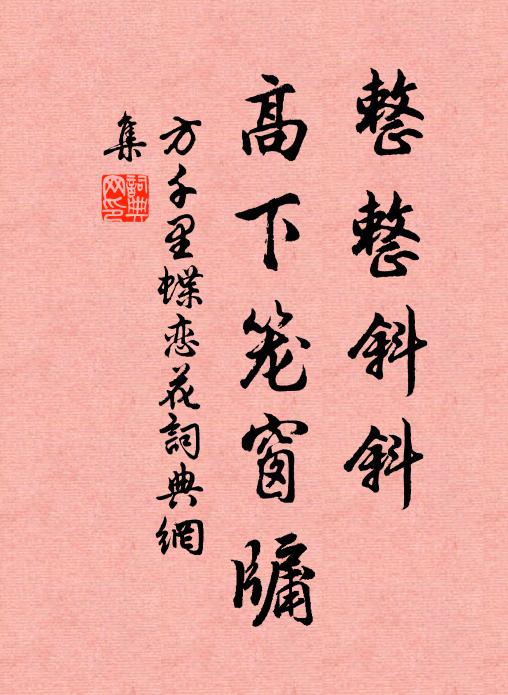 整整斜斜
高下笼窗牖
方千里蝶恋花詞典網
集
詞典网印